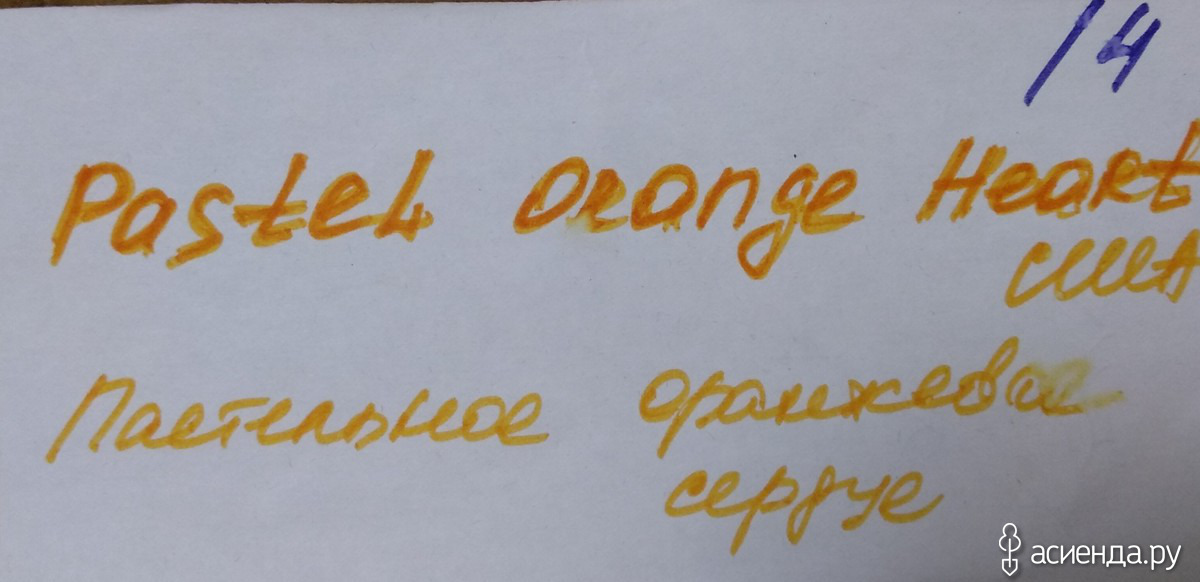 14
Pastel Orange Heart
США
Пастельное
сердце
асиенда.ру